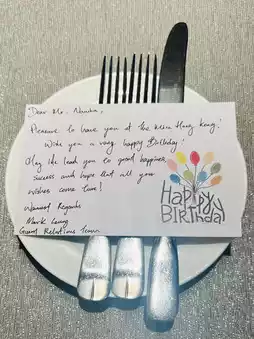 Dear Mr.
Pleasure to have you at the Hong Kong!
Wish you a very happy Birthday!
May life lead you to good happiness,
success and hope that all your
wishes come true!
Warmest Regards
Mark Leung
Guest Relations Team
Happy
Birthday